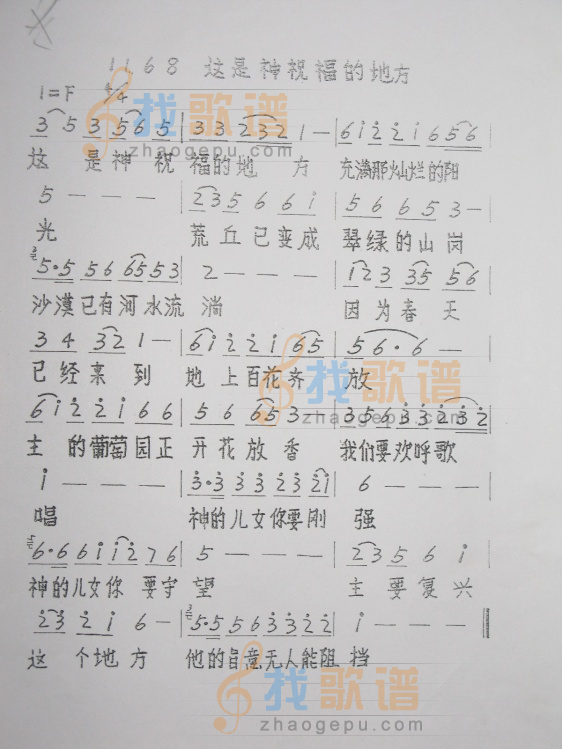 1168 这是神祝福的地方
1=F 4/4
3 5 3 5 6 5 | 3 3 2 3 2 1 — | 6 i 2 2 i 6 5 6 |
这 是神祝 福的地 方 充满那灿烂的阳
5 — — — | 2 3 5 6 6 i | 5 6 6 5 3 — |
光 荒丘已变成 翠绿的山岗
5·5 5 6 6 5 5 3 | 2 — — — | 1 2 3 3 5 5 6 |
沙漠已有河水流 淌 因为春天
3 4 3 2 1 — | 6 i 2 2 i 6 5 | 5 6· 6 — |
已经来到 地上百花齐 放
6 i 2 2 i 6 6 | 5 6 6 5 3 — | 3 5 6 3 3 2 3 2 |
主的葡萄园正 开花放香 我们要欢呼歌
i — — — | 3·3 3 3 2 3 2 i | 6 — — — |
唱 神的儿女你要刚 强
6·6 6 i i 2 7 6 | 5 — — — | 2 3 5 6 i |
神的儿女你 要守 望 主要复兴
2 3 2 i 6 — | 5·5 5 6 3 3 2 2 | i — — — ‖
这个地方 他的旨意无人能阻 挡
找歌谱
zhaogepu.com
找歌谱
zhaogepu.com
找歌谱
zhaogepu.com